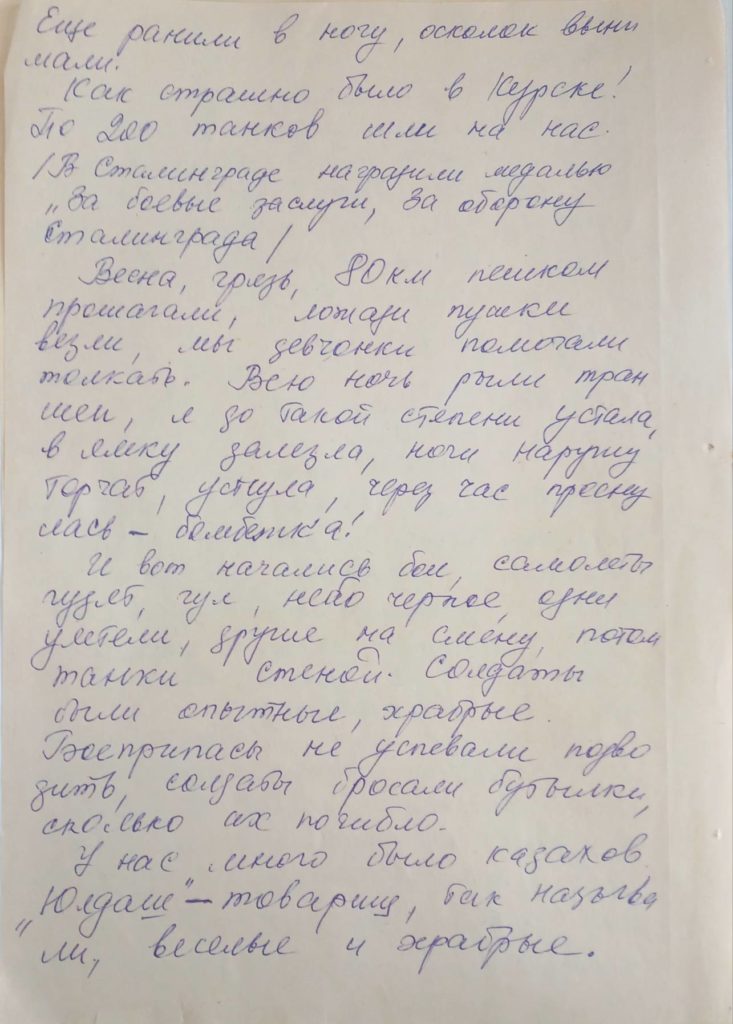 Еще ранили в ногу, осколок выни
мали.
Как страшно было в Курске!
По 200 танков шли на нас.
/В Сталинграде наградили медалью
„За боевые заслуги, За оборону
Сталинграда/
Весна, грязь, 80 км пешком
прошагали, лошади пушки
везли, мы девчонки помогали
толкать. Всю ночь рыли тран
шеи, я до такой степени устала,
в ямку залезла, ноги наружу
торчат, уснула, через час просну
лась – бомбежка!
И вот начались бои, самолеты
гудят, гул, небо черное, одни
улетели, другие на смену, потом
танки стеной. Солдаты
были опытные, храбрые.
Боеприпасы не успевали подво
дить, солдаты бросали бутылки,
сколько их погибло.
У нас много было казахов
„Юлдаш" – товарищ, так называ
ли, веселые и храбрые.